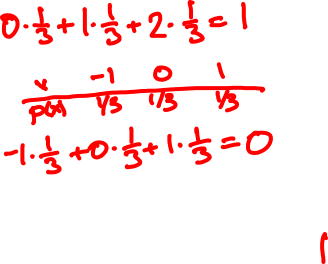 0·1/3+1·1/3+2·1/3=1
x -1 0 1
p(x) 1/3 1/3 1/3
-1·1/3+0·1/3+1·1/3=0